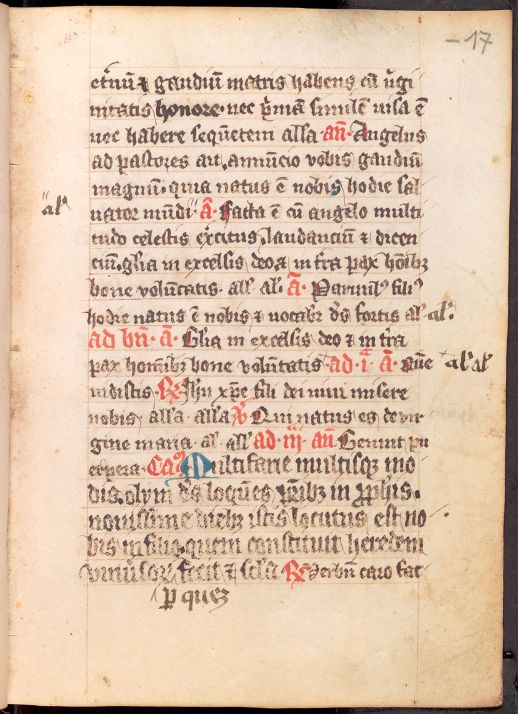 -17
etnū ⁊ gaudiū matris habens cū v̄gi
nitatis honore · nec p̄mā similē visa ē
nec habere seqūetem alla · an̄ · Angelus
ad pastores ait, annūcio vobis gaudiū
magnū · quia natus ē nobis hodie sal
al'
uator mūdi · ā · Facta ē cū angelo multi
tudo celestis ex̄citus, laudanciū ⁊ dicen
ciū · gl̄ia in excelsis deo ⁊ in t̄ra pax hoībꝫ
bone volūtatis · all' al' · ā · Paruul' fili'
hodie natus ē nobis ⁊ uocabr̄ d's fortis al' al' ·
ad bn̄ · ā · Gl̄ia in excelsis deo ⁊ in t̄ra
pax homībꝫ bone volūtatis · ad · i · ā · Quē al' al'
uidistis · ℞ Ihū xp̄e fili dei uiui misere
nobis alla alla ℣ Qui natus es de vir
gine maria al' all' ad · iij · an̄ Genuit pu
erpera · Ca · Multifarie multisqꝫ mo
dis · olym d's loquēs pr̄ibꝫ in ꝓphīs ·
nouissime diebꝫ istis locutus est no
bis in filio, quem constituit heredem
vniūsorꝝ fecit ⁊ sc̄la ℞ Verbū caro fac
ꝑ quez